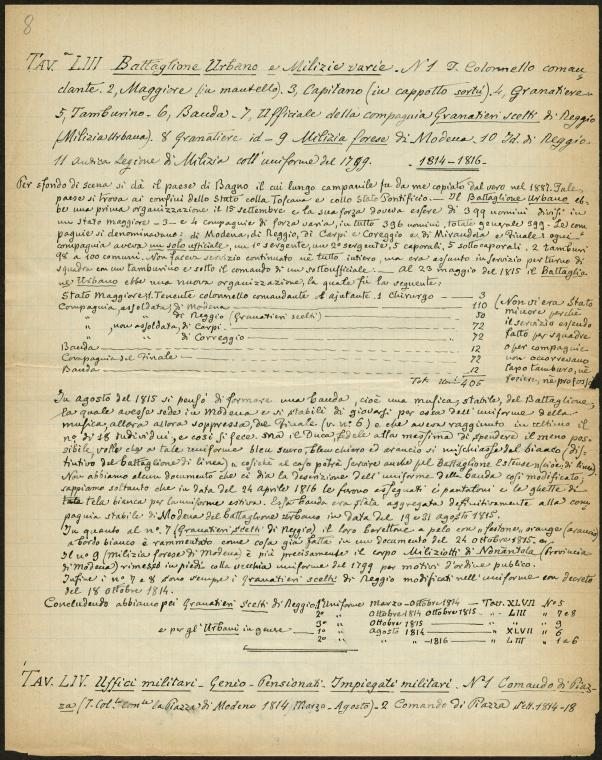 8
TAV.ª LIII Battaglione Urbano e Milizie varie. N 1 T. Colonnello coman
dante. 2, Maggiore (in mantello). 3, Capitano (in cappotto sortù) 4, Granatiere
5, Tamburino - 6, Banda - 7, Ufficiale della compagnia Granatieri scelti di Reggio
(Milizia Urbana). 8 Granatiere id - 9 Milizia forese di Modena. 10 Id. di Reggio
11 antica Legione di Milizia coll'uniforme del 1799. - 1814-1816 -
Per sfondo di scena si dà il paese di Bagno il cui lungo campanile fu da me copiato dal vero nel 1887. Tale
paese si trova ai confini dello Stato colla Toscana e collo Stato Pontificio. — Il Battaglione Urbano eb-
be una prima organizzazione il 15 settembre e la sua forza doveva essere di 399 uomini divisi in
un stato maggiore - 3 - e 4 compagnie di forza varia, in tutto 396 uomini, totale generale 399. Le com
pagnie si denominavano: di Modena, di Reggio, di Carpi e Coreggio, Mirandola e Finale e ogni
compagnia aveva un solo ufficiale, un 1º sergente, un 2º sergente, 5 caporali, 5 sottocaporali. 2 tamburi
98 a 100 comuni. Non faceva servizio continuato nè tutto intiero, ma era assunto in servizio per turno di
squadra con un tamburino e sotto il comando di un sottoufficiale. — Al 23 maggio del 1815 il Battaglio
ne Urbano ebbe una nuova organizzazione, la quale fu la seguente:
Stato Maggiore, 1. Tenente colonnello comandante 1 ajutante. 1 Chirurgo — 3
Compagnia, assoldata, di Modena — 110
" " di Reggio (Granatieri scelti) — 50
" , non assoldata, di Carpi — 72
" " di Correggio — 72
Banda — 12
Compagnia del Finale — 72
Banda — 12
Tot. Uni. 405
(Non vi era Stato
minore perchè
il servizio essendo
fatto per squadre
o per compagnie
non occorrevano
capo tamburo, nè
foriere, nè profosso
In agosto del 1815 si pensò di formare una banda, cioè una musica, stabile, del Battaglione,
la quale avesse sede in Modena e si stabilì di giovarsi per essa dell'uniforme della
musica, allora allora soppressa, del Finale (v. nº 6) e che aveva raggiunto in ultimo il
nº di 18 individui, e così si fece. Ma il Duca, fedele alla massima di spendere il meno pos-
sibile, volle che a tale uniforme bleu scuro, bleu chiaro ed arancio si mischiasse del bianco (dis-
tintivo del battaglione di linea) e cosichè al caso potrà servire anche pel Battaglione Estense (cioè, di linea).
Non abbiamo alcun documento che ci dia la descrizione dell'uniforme della banda così modificato;
sappiamo soltanto che in data del 24 aprile 1816 le furono assegnati i pantaloni e le ghette di
tela bianca per l'uniforme estiva. Essa banda era stata aggregata definitivamente alla com
pagnia stabile di Modena del battaglione urbano in data del 19 e 31 agosto 1815.
In quanto al nº. 7 (Granatieri scelti di Reggio) il loro berettone a pelo con festone,
a bordo bianco è rammentato come cosa già fatta in un documento del 24 ottobre 1815.
Il nº 9 (milizia forese di Modena) è più precisamente il corpo Miliziotti di Nonantola (Provincia
di Modena) rimesso in piedi colla vecchia uniforme del 1799 per motivi d'ordine publico.
Infine i nº 7 e 8 sono sempre i Granatieri scelti di Reggio modificati nell'uniforme con decreto
del 18 ottobre 1814.
Concludendo abbiamo pei Granatieri Scelti di Reggio, 1ª Uniforme Marzo - Ottobre 1814 — Tav. XLVII Nº 5
2ª " Ottobre 1814 Ottobre 1815 — " LIII " 7 e 8
3ª " Ottobre 1815 — " " " 9
e per gl'Urbani in genere — 1ª " Agosto 1814 — " XLVII " 6
2ª " " - 1816 — " LIII " 1 a 6
TAV. LIV. Uffici militari - Genio - Pensionati. Impiegati militari. Nº 1 Comando di Piaz-
za (T. Col.lo com.te la Piazza di Modena 1814 Marzo - Agosto) - 2 Comando di Piazza Sett. 1814-18